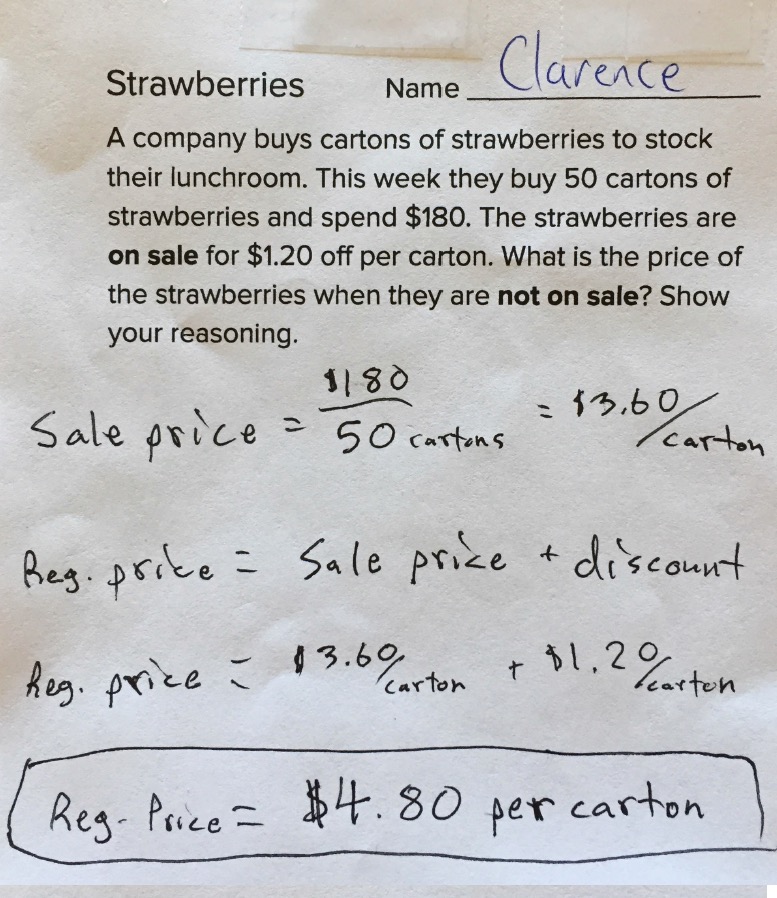 Strawberries Name Clarence
A company buys cartons of strawberries to stock
their lunchroom. This week they buy 50 cartons of
strawberries and spend $180. The strawberries are
on sale for $1.20 off per carton. What is the price of
the strawberries when they are not on sale? Show
your reasoning.
Sale price = $180/50 cartons = $3.60/carton
Reg. price = Sale price + discount
Reg. price = $3.60/carton + $1.20/carton
Reg. Price = $4.80 per carton